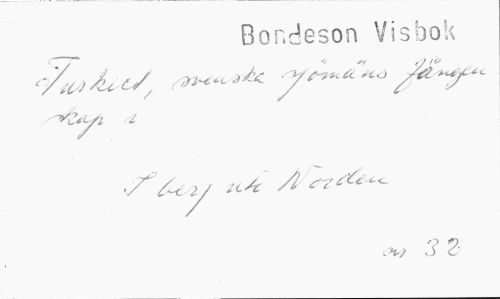 Bondeson Visbok
Turkiet, svenska sjömäns fången
skap i
I berg uti Norden
nr 32